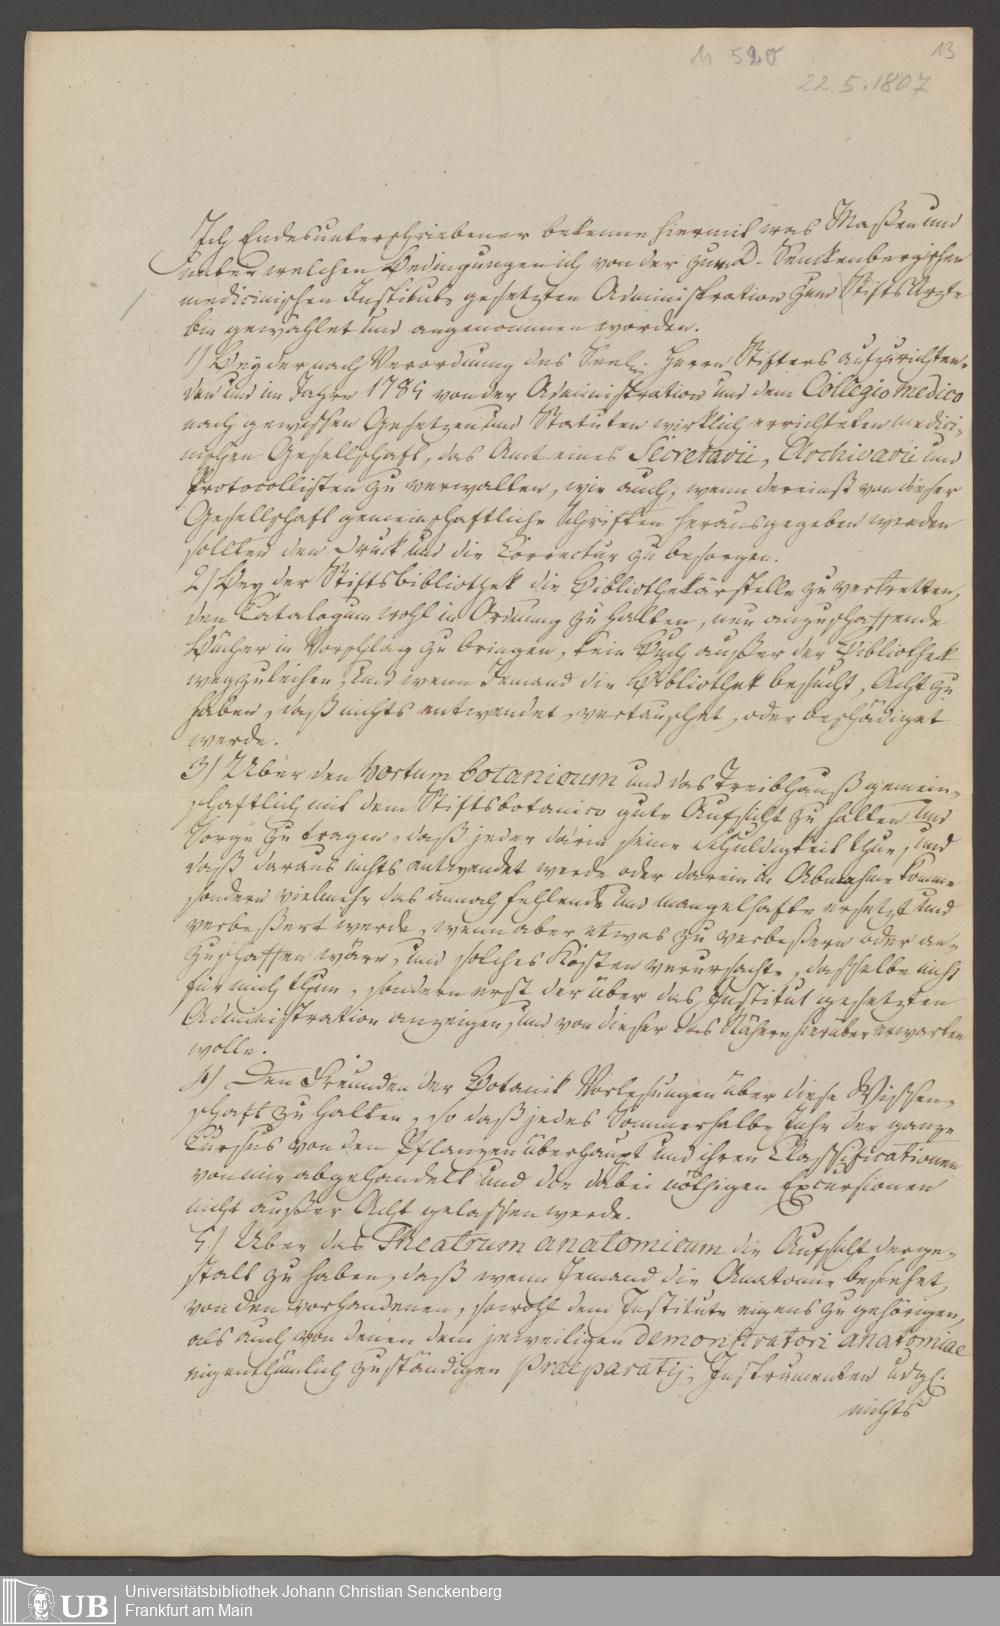 13
M 520
22.5.1807
Ich Endesunterschriebener bekenne hiermit was Maßen und
unter welchen Bedingungen ich von der zum D. Senckenbergischen
medicinischen Institute gesetzten Administration zum Stifts Arzte
bin gewählet und angenommen worden.
1) Bey der nach Verordnung des Seel. Herrn Stifters aufzurichten-
den und im Jahre 1785 von der Administration und dem Collegio medico
nach gewissen Gesetzen und Statuten wirklich errichteten medici-
nischen Gesellschaft, das Amt eines Secretarii, Archivarii und
Protocollisten zu verwalten, wie auch, wenn dereinst von dieser
Gesellschaft gemeinschaftliche Schriften herausgegeben werden
sollten den Druck und die Correctur zu besorgen.
2) Bey der Stiftsbibliothek die Bibliothekärstelle zu vertretten,
den Catalogum wohl in Ordnung zu halten, neu anzuschaffende
Bücher in Vorschlag zu bringen, kein Buch außer der Bibliothek
wegzuleihen, und wenn Jemand die Bibliothek besucht, Acht zu
haben, daß nichts entwendet, vertauschet, oder beschädiget
werde.
3) Über den hortum botanicum und das Treibhauß gemein-
schaftlich mit dem Stiftsbotanico gute Aufsicht zu halten und
Sorge zu tragen, daß jeder darin seine Schuldigkeit thue, und
daß daraus nichts entwendet werde oder darein in Abnahme komme
sondern vielmehr das annoch fehlende und mangelhafte ersetzt und
verbeßert werde, wenn aber etwas zu verbeßern oder an-
zuschaffen wäre, und solches Kosten verursachte, dasselbe nicht
für mich thun, sondern erst der über das Institut gesetzten
Administration anzeigen, und von dieser das Nähere hierüber erwarten
wolle.
4) Den Freunden der Botanick Vorlesungen über diese Wissen-
schaft zu halten, so daß jedes Sommerhalbe Jahr der ganze
Cursus von den Pflanzen überhaupt und ihren Classificationen
von mir abgehandelt und die dabei nöthigen Excursionen
nicht außer Acht gelassen werde.
5) Über das Theatrum anatomicum die Aufsicht derge-
stalt zu haben, daß wenn Jemand die Anatomie besiehet,
von den vorhandenen, sowohl dem Institute eigens zu gehörigen,
als auch von denen dem jeweiligen demonstratori anatomiae
eigenthümlich zuständigen Praeparatis, Instrumenten udgl.
nichts
UB
Universitätsbibliothek Johann Christian Senckenberg
Frankfurt am Main